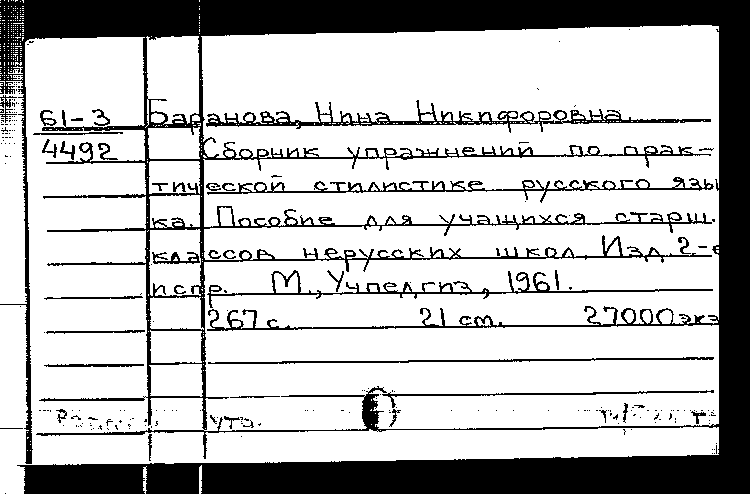 61-3 Баранова, Нина Никифоровна.
4492 Сборник упражнений по прак-
тической стилистике русского язы
ка. Пособие для учащихся старш.
классов нерусских школ. Изд. 2-е
испр. М., Учпедгиз, 1961.
267 с. 21 cm. 27000 экз